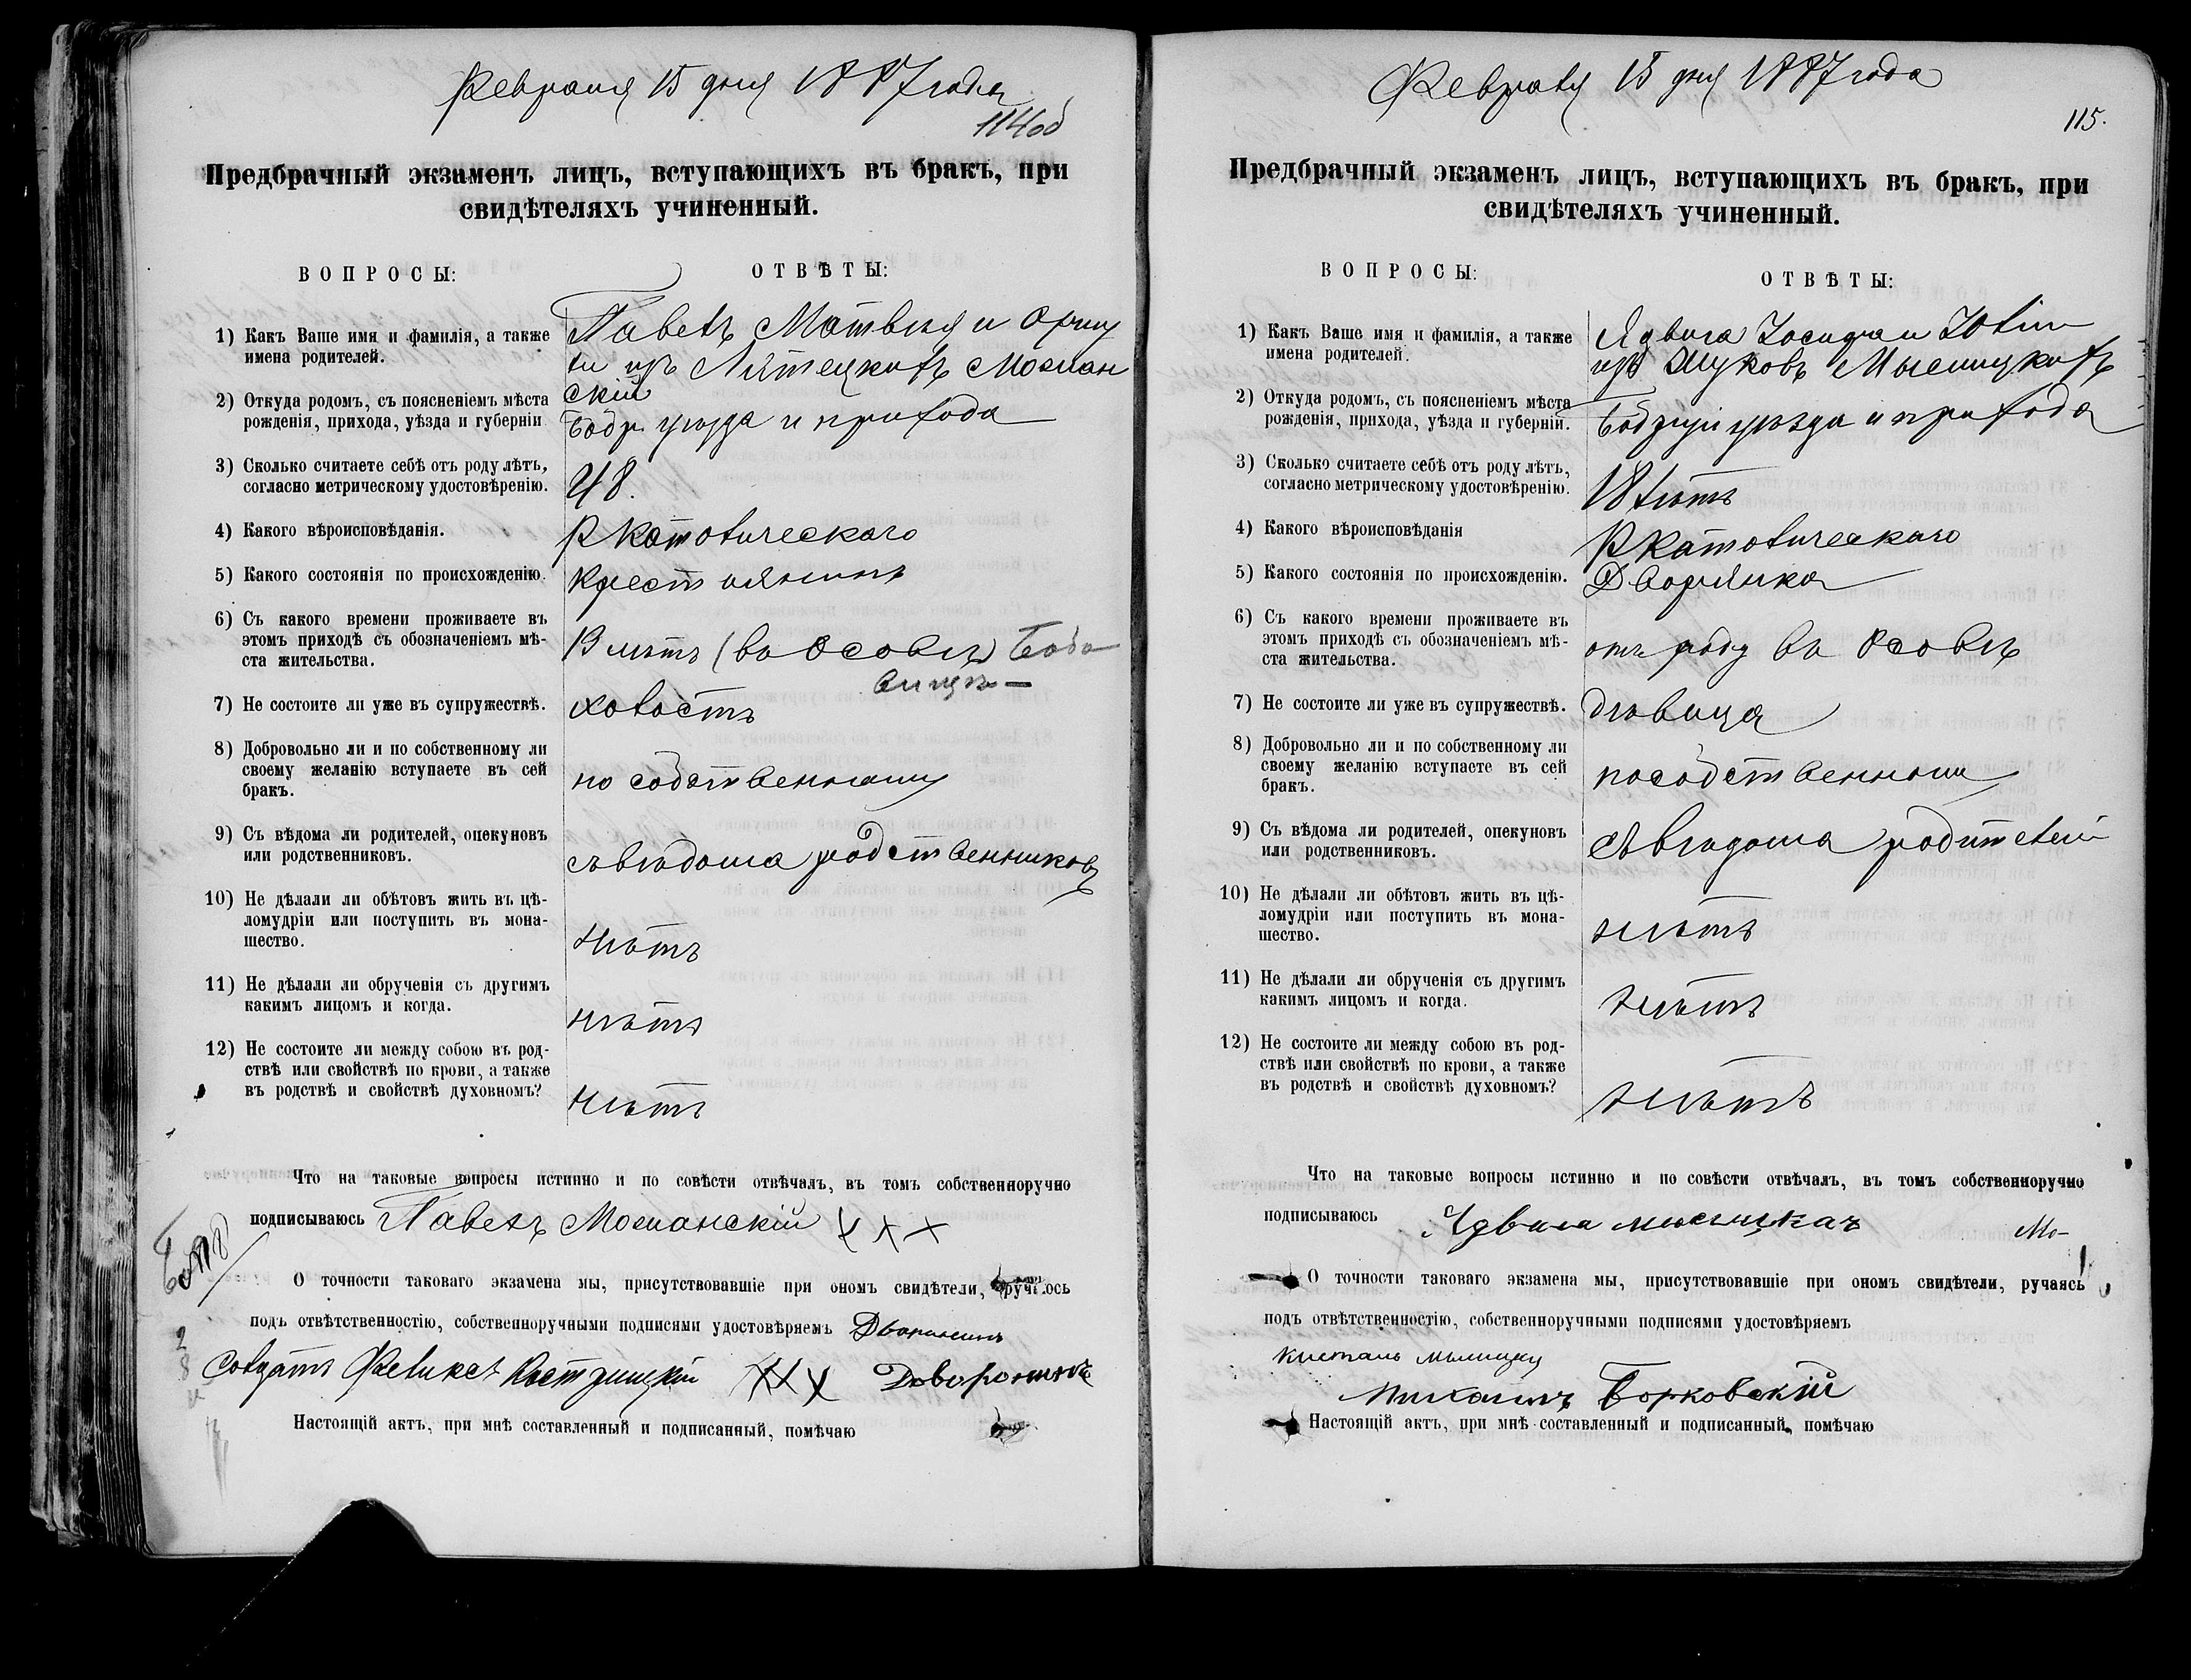 Февраля 15 дня 1887 года
114 об
Предбрачный экзаменъ лицъ, вступающихъ въ бракъ, при
свидѣтеляхъ учиненный.
ВОПРОСЫ:
ОТВѢТЫ:
1) Какъ Ваше имя и фамилія, а также
имена родителей.
Павелъ Матвѣя и
изъ Мосман
скій
2) Откуда родомъ, съ поясненіемъ мѣста
рожденія, прихода, уѣзда и губерніи
Бобр. уѣзда и прихода
3) Сколько считаете себѣ отъ роду лѣтъ,
согласно метрическому удостовѣренію.
48.
4) Какого вѣроисповѣданія.
Р Католическаго
5) Какого состоянія по происхожденію.
Крестьянинъ
6) Съ какого времени проживаете въ
этомъ приходѣ съ обозначеніемъ мѣ-
ста жительства.
лѣтъ (во Осовѣ)
7) Не состоите ли уже въ супружествѣ.
холостъ
8) Добровольно ли и по собственному ли
своему желанію вступаете въ сей
бракъ.
по собственному
9) Съ вѣдома ли родителей, опекуновъ
или родственниковъ.
съ вѣдома родственниковъ
10) Не дѣлали ли обѣтовъ жить въ цѣ-
ломудріи или поступить въ мона-
шество.
нѣтъ
11) Не дѣлали ли обрученія съ другимъ
какимъ лицомъ и когда.
нѣтъ
12) Не состоите ли между собою въ род-
ствѣ или свойствѣ по крови, а также
въ родствѣ и свойствѣ духовномъ?
нѣтъ
Что на таковые вопросы истинно и по совѣсти отвѣчалъ, въ томъ собственноручно
подписываюсь Павелъ Мосманскій ххх
О точности таковаго экзамена мы, присутствовавшіе при ономъ свидѣтели,
подъ отвѣтственностію, собственноручными подписями удостовѣряемъ Дворянинъ
Солдатъ Феликсъ ххх
Настоящій актъ, при мнѣ составленный и подписанный, помѣчаю
Февраля 15 дня 1887 года
115.
Предбрачный экзаменъ лицъ, вступающихъ въ бракъ, при
свидѣтеляхъ учиненный.
ВОПРОСЫ:
ОТВѢТЫ:
1) Какъ Ваше имя и фамилія, а также
имена родителей.
Ядвига Іосифа и Юліи
изъ Жуковъ
2) Откуда родомъ, съ поясненіемъ мѣста
рожденія, прихода, уѣзда и губерніи.
уѣзда и прихода
3) Сколько считаете себѣ отъ роду лѣтъ,
согласно метрическому удостовѣренію.
18 лѣтъ
4) Какого вѣроисповѣданія
Р Католическаго
5) Какого состоянія по происхожденію.
Дворянка
6) Съ какого времени проживаете въ
этомъ приходѣ съ обозначеніемъ мѣ-
ста жительства.
отъ роду во Осовѣ
7) Не состоите ли уже въ супружествѣ.
дѣвица
8) Добровольно ли и по собственному ли
своему желанію вступаете въ сей
бракъ.
по собственному
9) Съ вѣдома ли родителей, опекуновъ
или родственниковъ.
съ вѣдома родителей
10) Не дѣлали ли обѣтовъ жить въ цѣ-
ломудріи или поступить въ мона-
шество.
нѣтъ
11) Не дѣлали ли обрученія съ другимъ
какимъ лицомъ и когда.
нѣтъ
12) Не состоите ли между собою въ род-
ствѣ или свойствѣ по крови, а также
въ родствѣ и свойствѣ духовномъ?
нѣтъ
Что на таковые вопросы истинно и по совѣсти отвѣчалъ, въ томъ собственноручно
подписываюсь Ядвига
О точности таковаго экзамена мы, присутствовавшіе при ономъ свидѣтели, ручаясь
подъ отвѣтственностію, собственноручными подписями удостовѣряемъ
Михаилъ Борковскій
Настоящій актъ, при мнѣ составленный и подписанный, помѣчаю